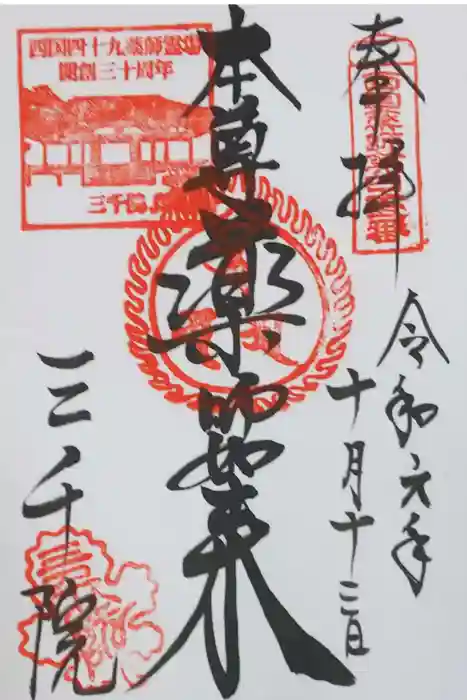 奉拝
令和六年
十月十二日
本尊薬師如来
三千院
四国四十九薬師霊場
開創三十周年
三千院